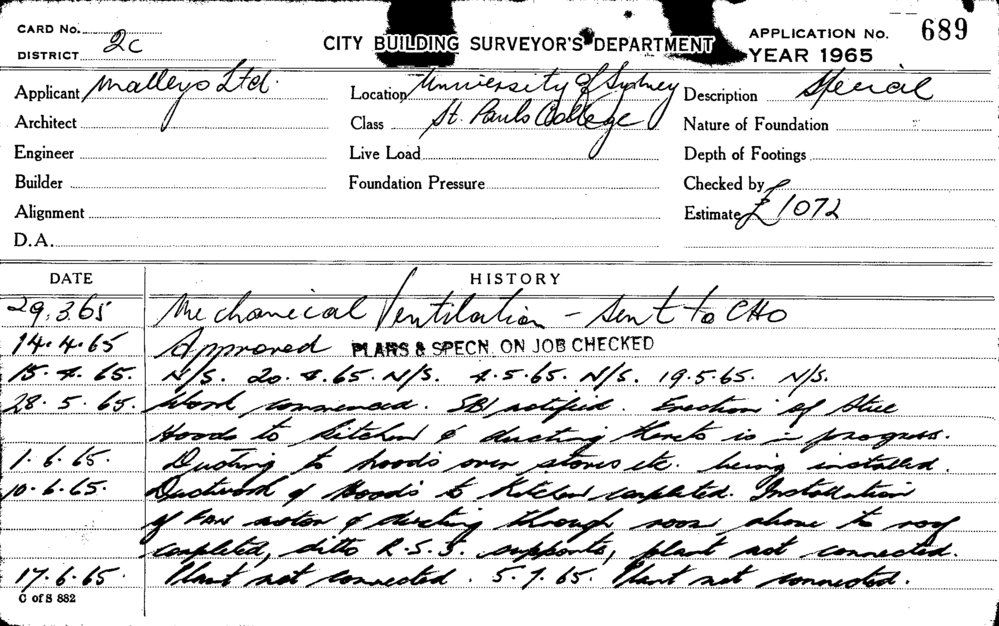 CARD No.
DISTRICT 2c
CITY BUILDING SURVEYOR'S DEPARTMENT
APPLICATION No. 689
YEAR 1965
Applicant Malleys Ltd.
Location University of Sydney
Description Special
Architect
Class St. Pauls College
Nature of Foundation
Engineer
Live Load
Depth of Footings
Builder
Foundation Pressure
Checked by
Alignment
Estimate £1072
D.A.
DATE HISTORY
29.3.65 Mechanical Ventilation - Sent to CHO
14.4.65 Approved PLANS & SPECN. ON JOB CHECKED
15.4.65. N/S. 20.4.65. N/S. 4.5.65. N/S. 19.5.65. N/S.
28.5.65. Work commenced. SBI notified. Erection of Stee
Hoods to Kitchen & ducting thereto is in progress.
1.6.65. Ducting to hoods over stoves etc. being installed.
10.6.65. Ductwork & Hoods to Kitchen completed. Installation
of FAN motor & ducting through room above to roof
completed, ditto R.S.J. supports, plant not connected.
17.6.65. Plant not connected. 5.7.65. Plant not connected.
C of S 882